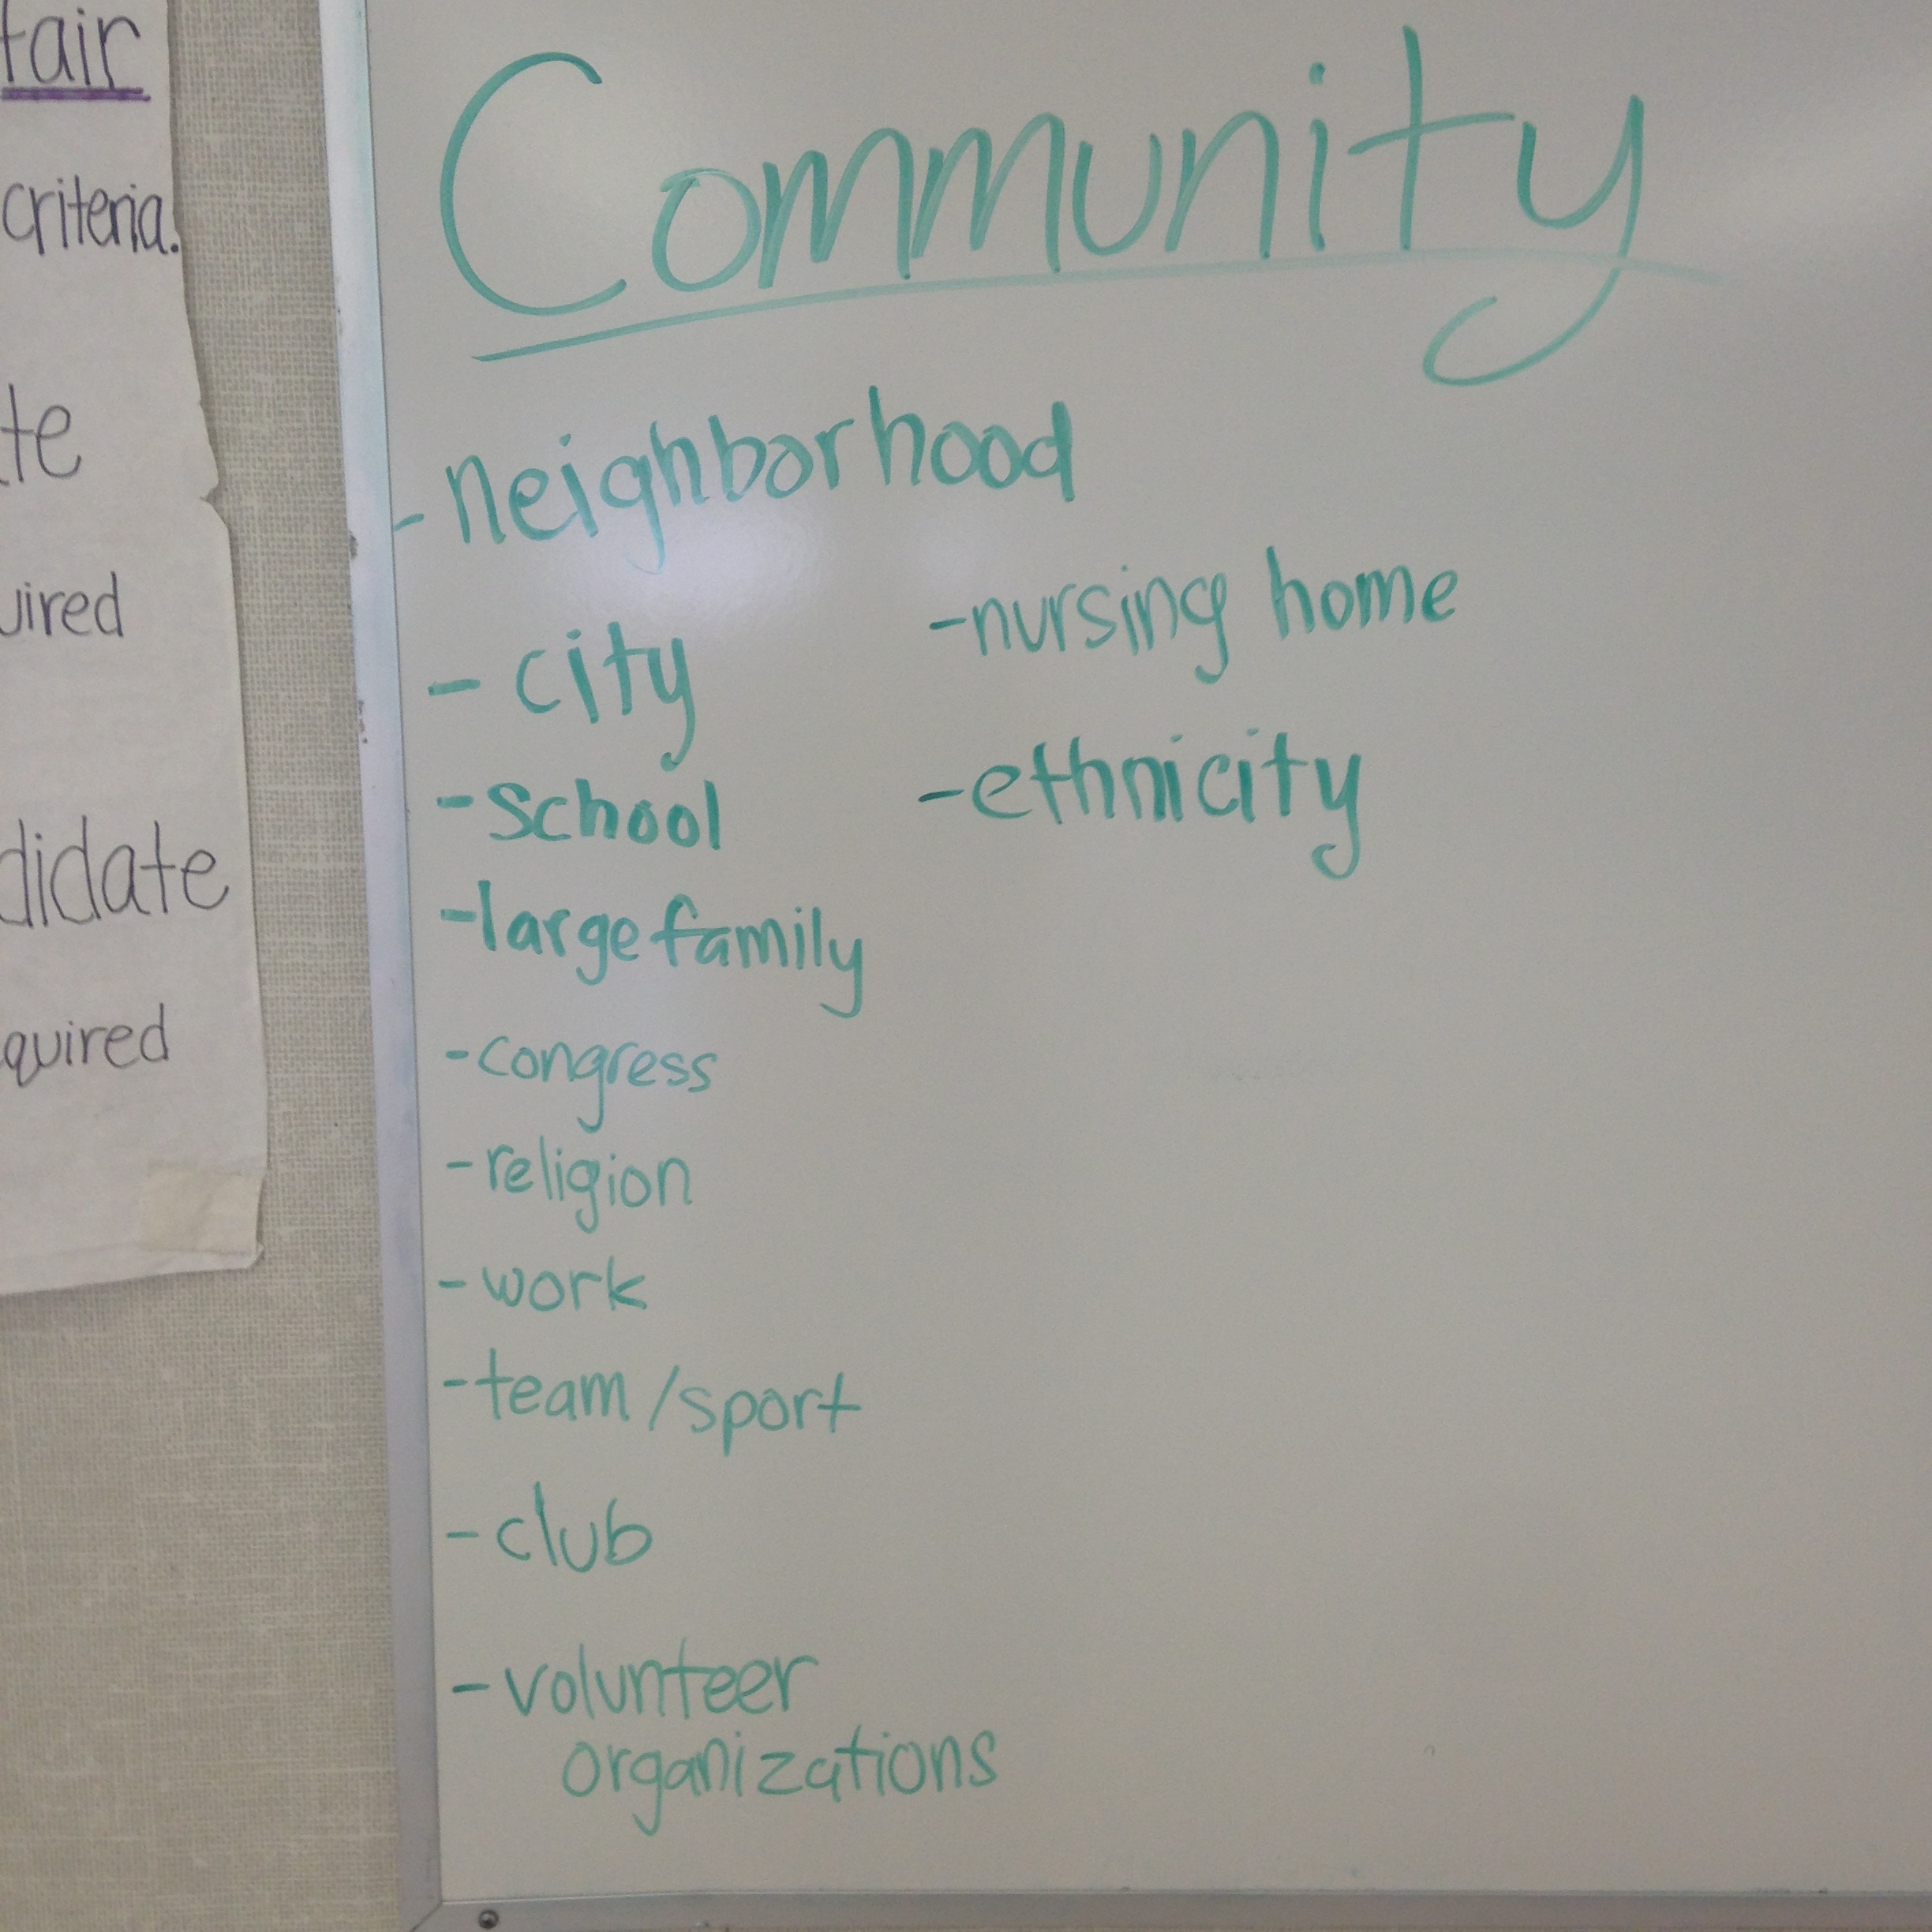 fair
criteria.
te
uired
didate
quired
Community
- neighborhood
- city
- school
- large family
- congress
- religion
- work
- team/sport
- club
- volunteer
organizations
- nursing home
- ethnicity